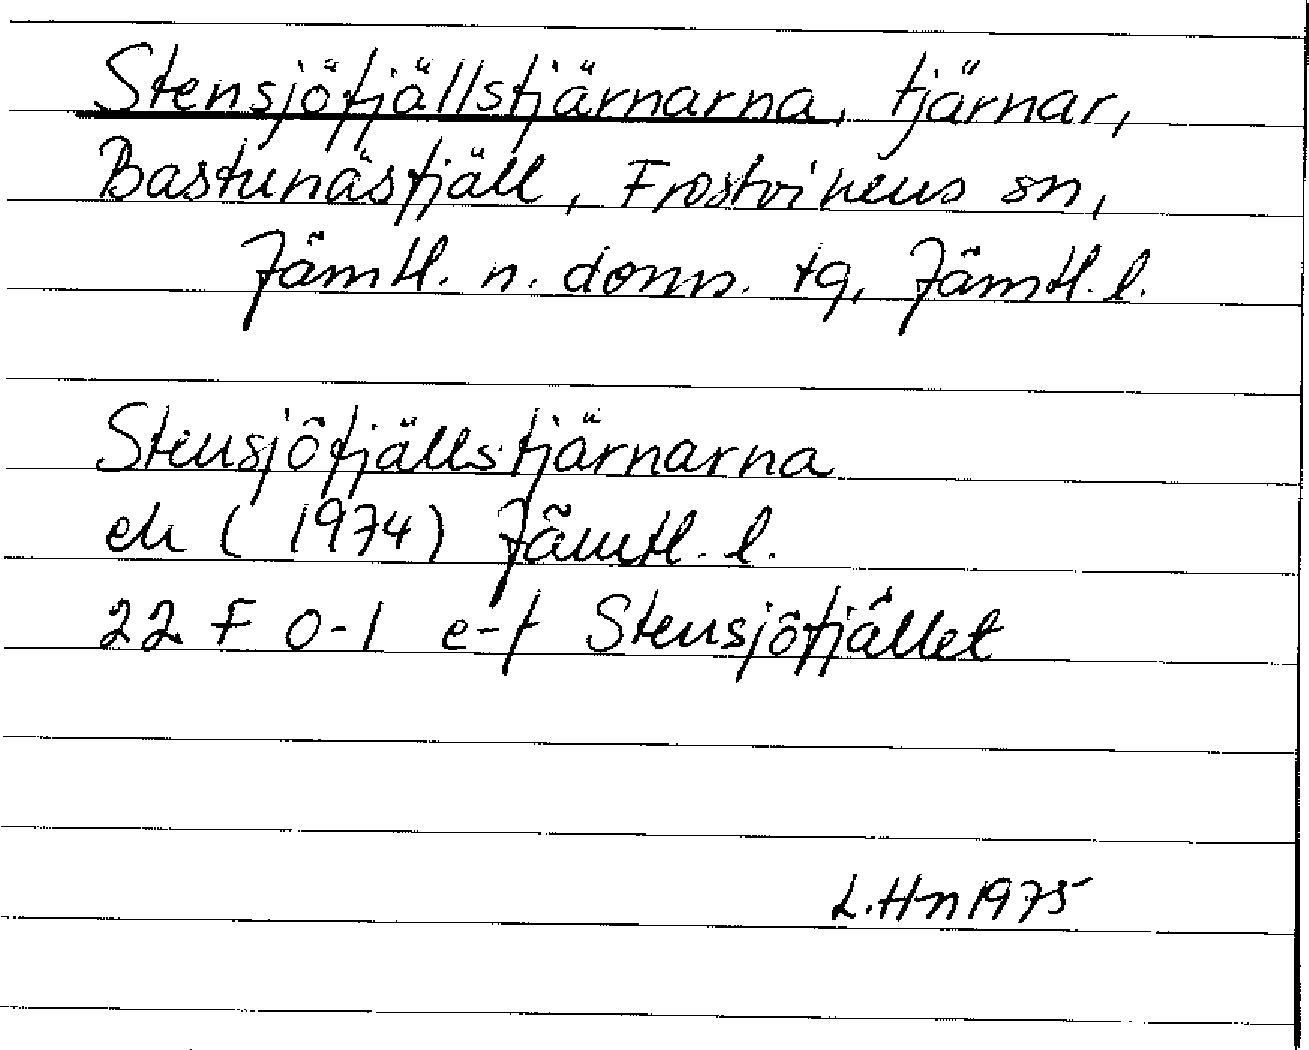 Stensjöfjällstjärnarna, tjärnar,
Bastunäsfjäll, Frostvikens sn,
Jämtl. n. doms. tg, Jämtl. l.
Stensjöfjällstjärnarna
ek (1974) Jämtl. l.
22 F 0-1 e-f Stensjöfjället
L.Hn 1975